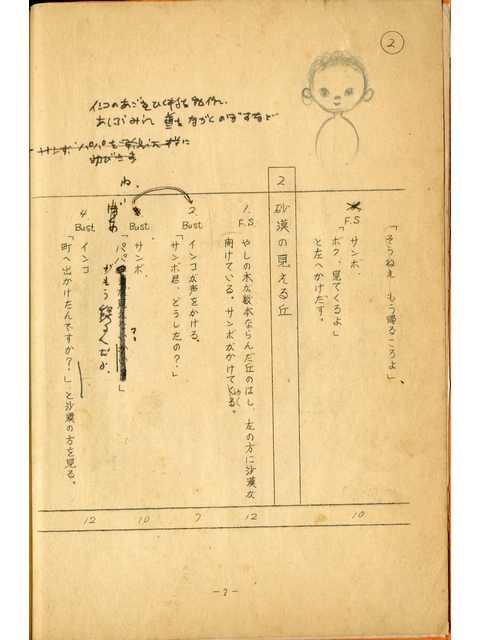 ②
「そうねえ もう帰るころよ」
F.S.
サンボ、
「ボク、見てくるよ」
と左へかけだす。
2 砂漠の見える丘
1. F.S. やしの木が数本ならんだ丘のはし、左の方に沙漠が
開けている。サンボがかけてくる。
ゆく
2. Bust インコが声をかける。
「サンボ君、どうしたの？」
3. Bust サンボ、
「パパ 」
がもう
4. Bust インコ
「町へ出かけたんですか？」と沙漠の方を見る。
インコのあごを
サンボ パパを
のびさま
10
12
7
10
12
－2－